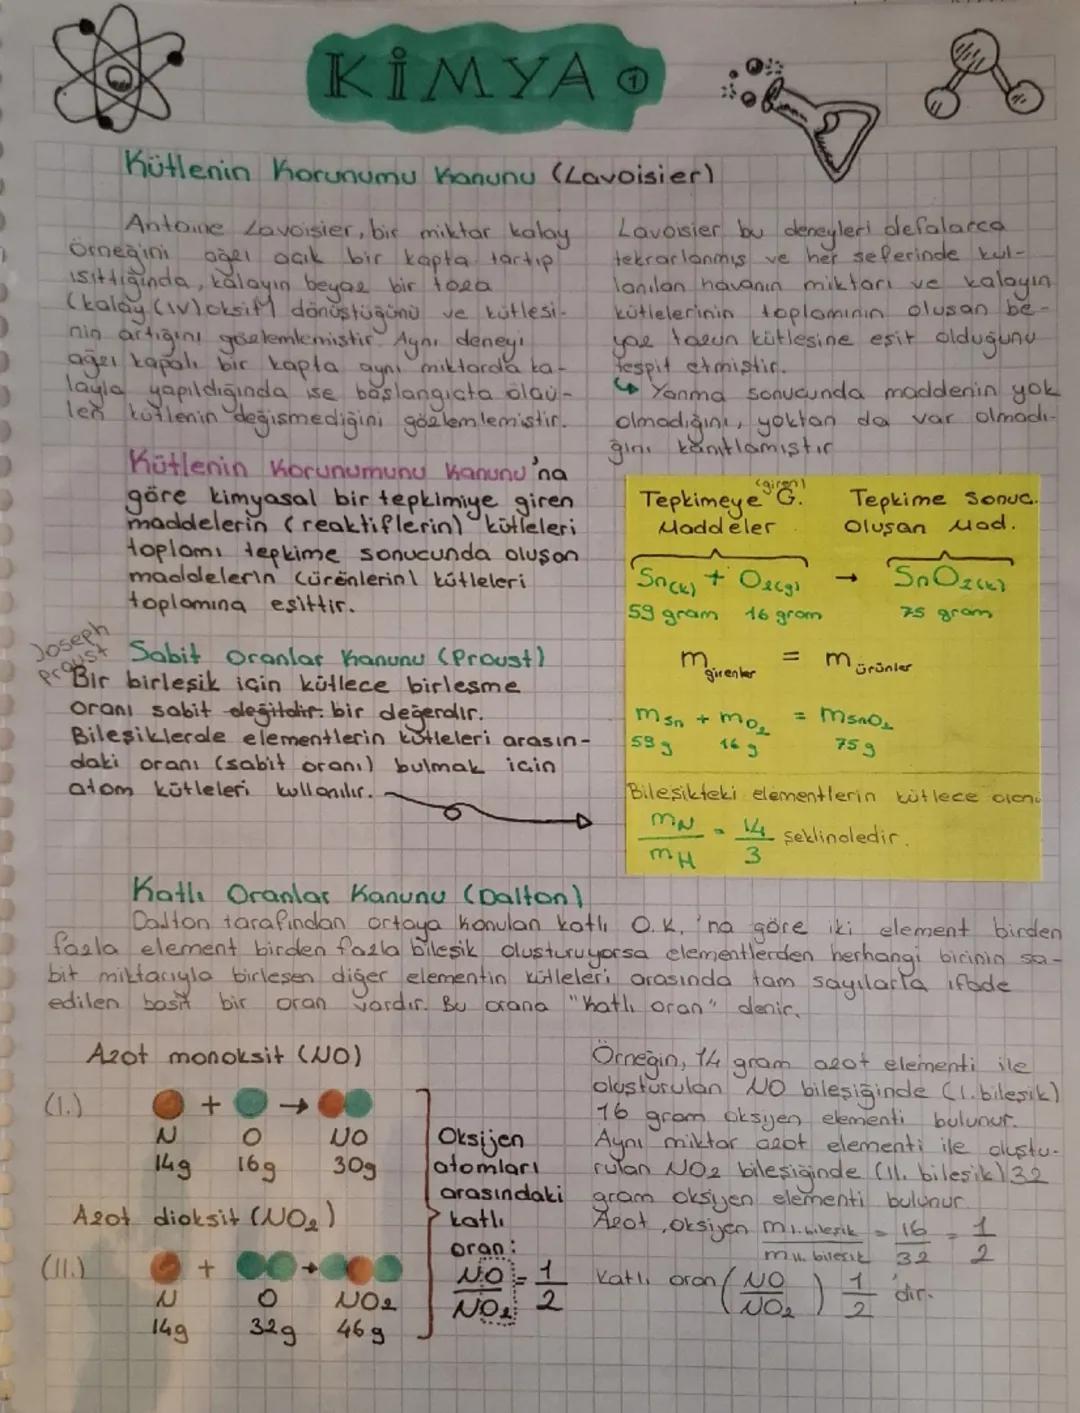 KİMYA 1
Kütlenin Korunumu Kanunu (Lavoisier)
Antoine Lavoisier, bir miktar kalay
örneğini ağzı açık bir kapta tartıp
ısıttığında, kalayın beyaz bir toza
(kalay (IV) oksit) dönüştüğünü ve kütlesi-
nin artığını gözlemlemiştir. Aynı deneyi
ağzı kapalı bir kapta aynı miktarda ka-
layla yapıldığında ise başlangıçta ölçü-
len kütlenin değişmediğini gözlemlemiştir.
Lavoisier bu deneyleri defalarca
tekrarlanmış ve her seferinde kul-
lanılan havanın miktarı ve kalayın
kütlelerinin toplamının oluşan be-
yaz tozun kütlesine eşit olduğunu
tespit etmiştir.
↳ Yanma sonucunda maddenin yok
olmadığını, yoktan da var olmadı-
ğını kanıtlamıştır
Kütlenin Korunumunu Kanunu'na
göre kimyasal bir tepkimiye giren
maddelerin (reaktiflerin) kütleleri
toplamı tepkime sonucunda oluşan
maddelerin (ürünlerin) kütleleri
toplamına eşittir.
(giren)
Tepkimeye G. Tepkime Sonuc.
Maddeler Oluşan Mad.
Sn(k) + O2(g) → SnO2(k)
59 gram 16 gram 75 gram
m girenler = m ürünler
mSn + mO2 = mSnO2
59 g 16 g 75 g
Bileşikteki elementlerin kütlece oranı
mN/mH = 14/3 şeklindedir.
Joseph
Proust
Sabit Oranlar Kanunu (Proust)
Bir birleşik için kütlece birleşme
oranı sabit değildir. bir değerdir.
Bileşiklerde elementlerin kütleleri arasın-
daki oranı (sabit oranı) bulmak için
atom kütleleri kullanılır.
Katlı Oranlar Kanunu (Dalton)
Dalton tarafından ortaya konulan katlı O.K.'na göre iki element birden
fazla element birden fazla bileşik oluşturuyorsa elementlerden herhangi birinin sa-
bit miktarıyla birleşen diğer elementin kütleleri arasında tam sayılarla ifade
edilen basit bir oran vardır. Bu orana "Katlı oran" denir.
Azot monoksit (NO)
(I.) + →
N O NO
14g 16g 30g
Azot dioksit (NO2)
(II.) + →
N O NO2
14g 32g 46g
Oksijen
atomları
arasındaki
katlı
oran:
NO/NO2 = 1/2
Örneğin, 14 gram azot elementi ile
oluşturulan NO bileşiğinde (I. bileşik)
16 gram oksijen elementi bulunur.
Aynı miktar azot elementi ile oluştu-
rulan NO2 bileşiğinde (II. bileşik) 32
gram oksijen elementi bulunur.
Azot, oksijen m I. bileşik / m II. bileşik = 16/32 = 1/2
Katlı oran (NO/NO2) 1/2 'dir.